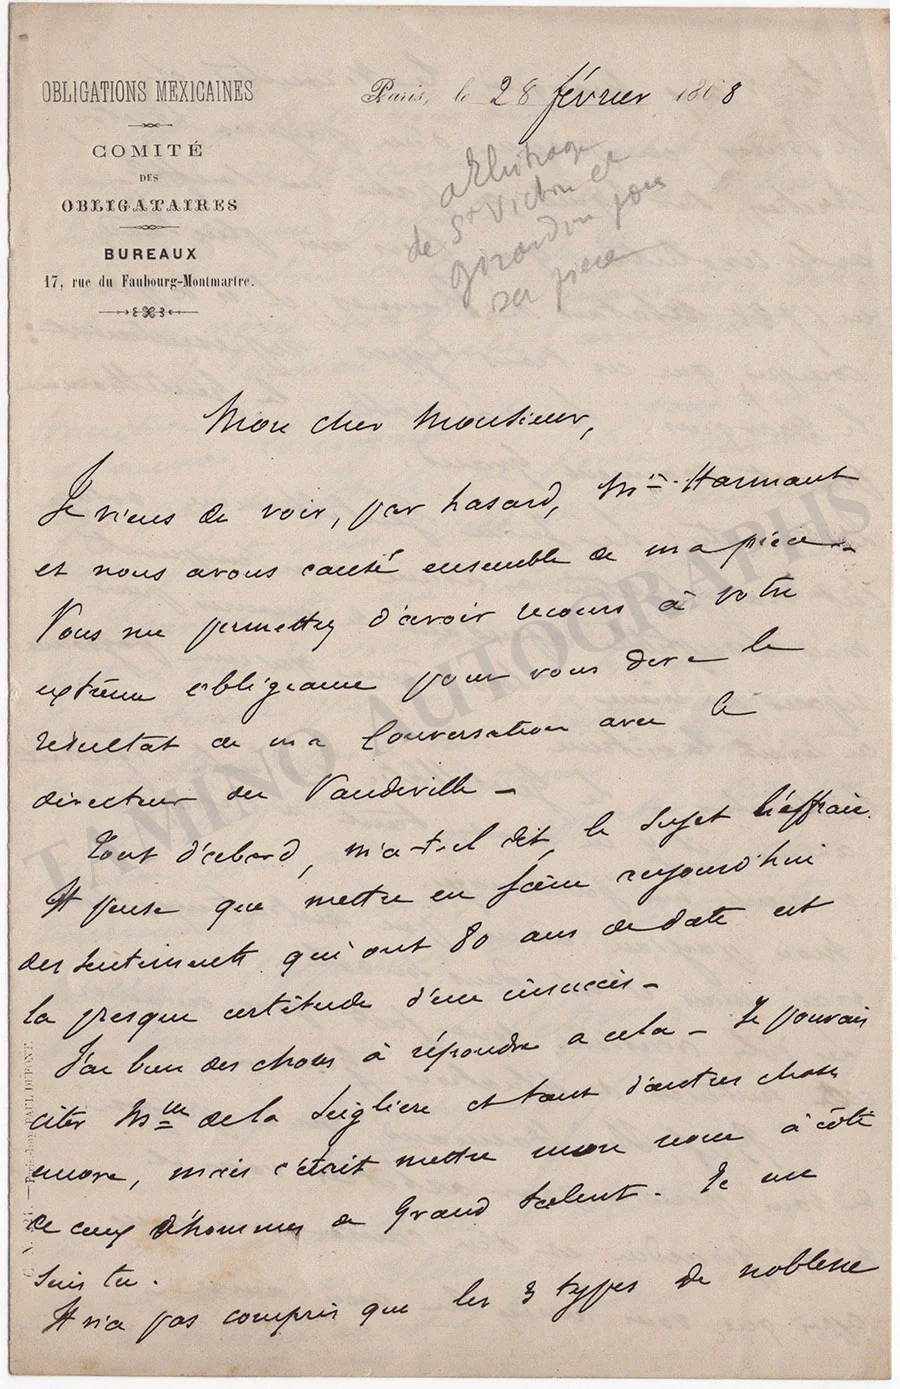 OBLIGATIONS MEXICAINES
COMITÉ
DES
OBLIGATAIRES
BUREAUX
17, rue du Faubourg-Montmartre.
Paris, le 28 février 1868
arbitrage
de St Victor et
Girardin pour
sa pièce
Mon cher Monsieur,
Je viens de voir, par hasard, Mr Harmant
et nous avons causé ensemble de ma pièce -
Vous me permettez d'avoir recours à votre
extrême obligeance pour vous dire le
résultat de ma Conversation avec le
directeur du Vaudeville -
Tout d'abord, m'a-t-il dit, le sujet l'effraie.
Il pense que mettre en scène aujourd'hui
des sentiments qui ont 80 ans de date est
la presque certitude d'un insuccès -
J'ai bien des choses à répondre a cela - Je pouvais
citer Mlle de la Seiglière et tant d'autres choses
encore, mais c'était mettre mon nom à côté
de ceux d'hommes de Grand talent. Je me
suis tu.
Il n'a pas compris que les 3 types de noblesse
PAUL DUPONT.
TAMINO AUTOGRAPHS